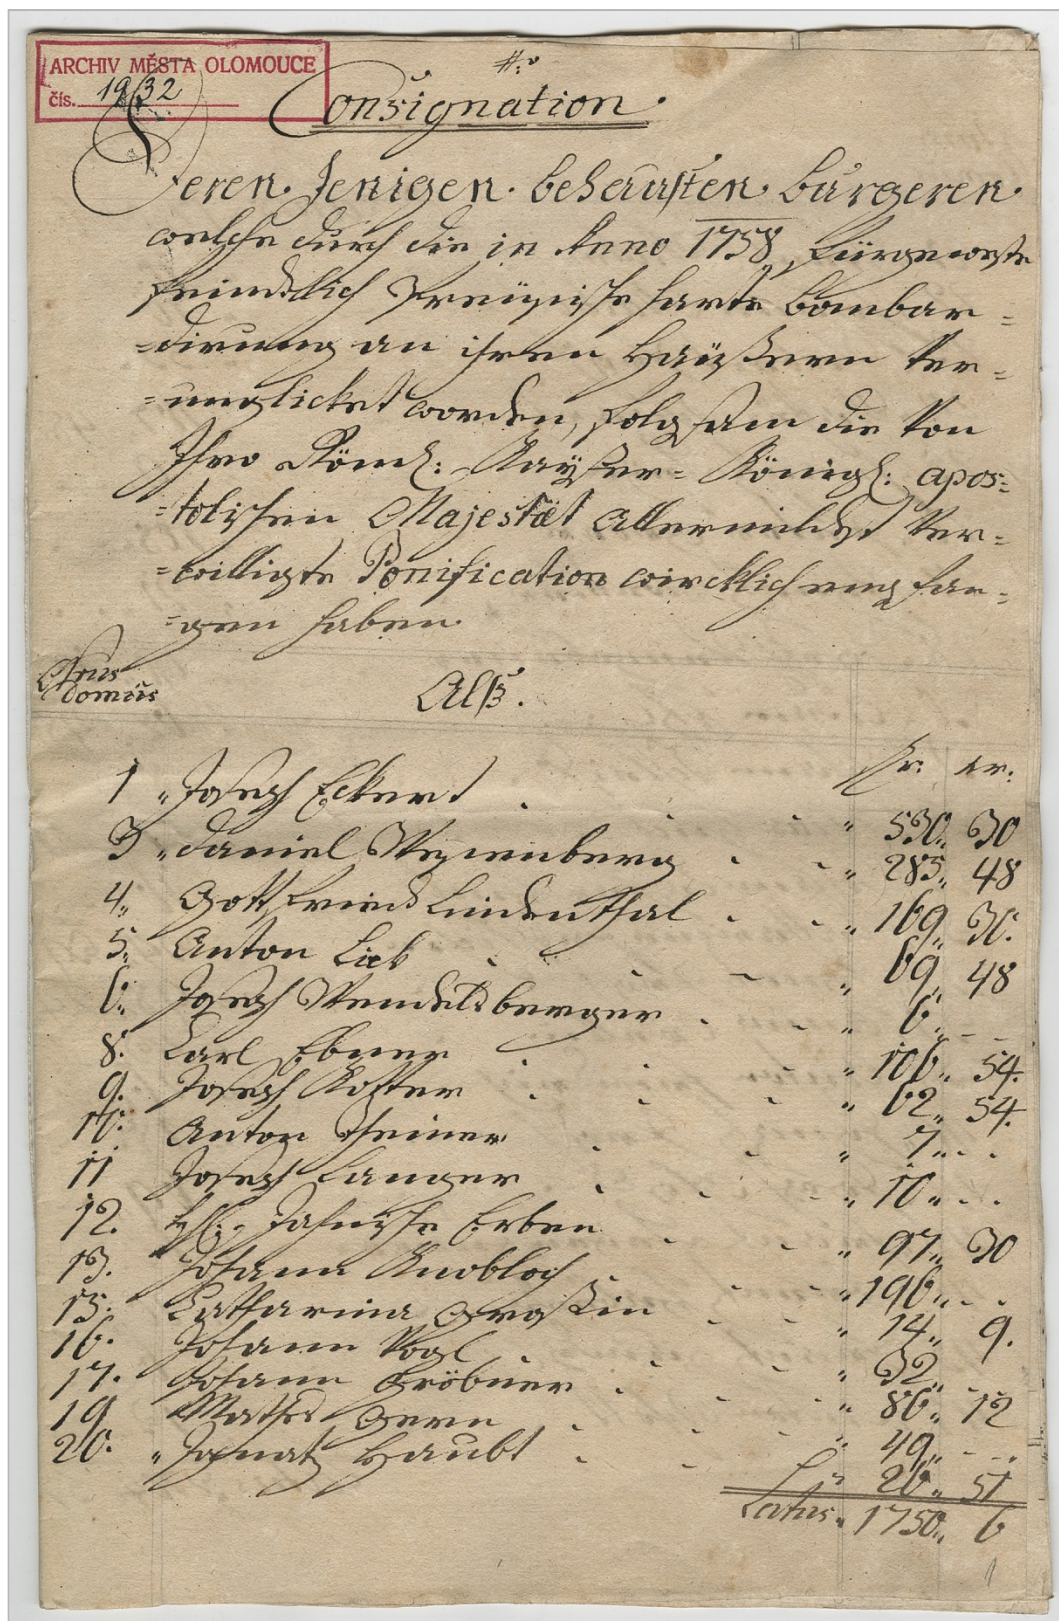 ARCHIV MĚSTA OLOMOUCE
čís. 1932
Consignation.
Deren Jenigen behausten bürgeren
welche durch die in Anno 1758 fürgeweste
feindtlich Preüsische harte Bombar=
=dirung an ihren Häußern Ver=
=unglicket worden, folgsam die Von
Ihro Röml: Kayßer= Königl: apos=
=tolischen Majestät Allermildest Ver=
=willigte Bonification wircklich empfan=
=gen haben.
Nrus
domus
Alß.
fr: xr:
1 Joseph Eckert 530 30
3 Daniel Wezienberg 285 48
4 Gottfried Lindenthal 169 30
5 Anton Lick 69 48
6 Joseph Wendelsberger 6 –
8. Carl Ebner 106 54
9. Joseph Koster 62 54
10. Anton Theiner 7
11 Joseph Langer 10
12. Jahnische Erben 97 30
13. Johann Knobloch 196
15. Catharina Großin 14 9.
16. Johann Vogl 32
17. Johann Gröbner 86 12
19 Mathes Gern 49 –
20. Ignatz Haubt 26 51
Latus 1750 6